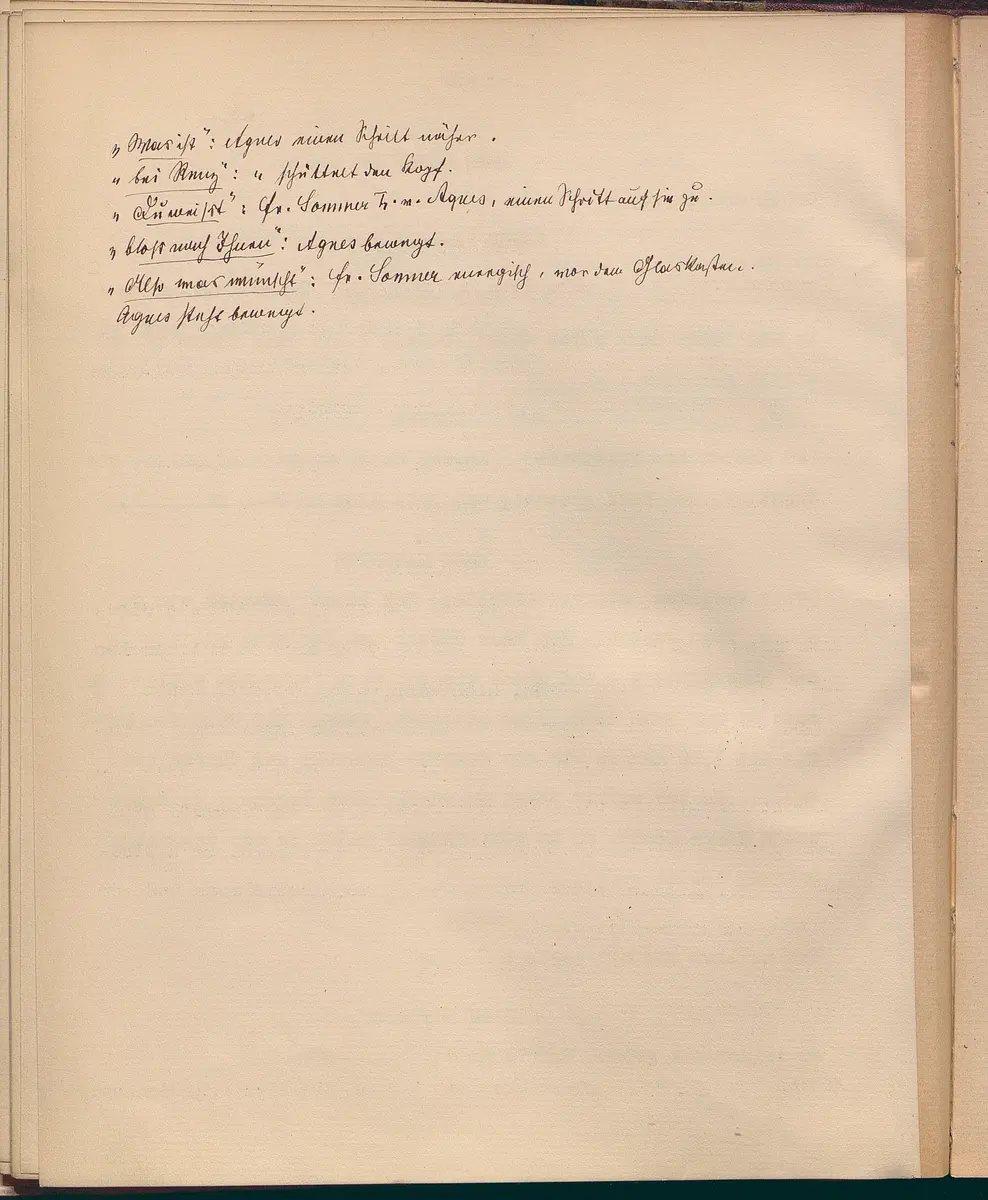 „Was ist": Agnes einen Schritt näher.
„bei Renz": „ schüttelt den Kopf.
„Du weisst": Fr. Sommer z. v. Agnes, einen Schritt auf sie zu.
„bloss nach Ihnen": Agnes bewegt.
„Also was wünscht": Fr. Sommer energisch, vor dem Glaskasten.
Agnes steht bewegt.